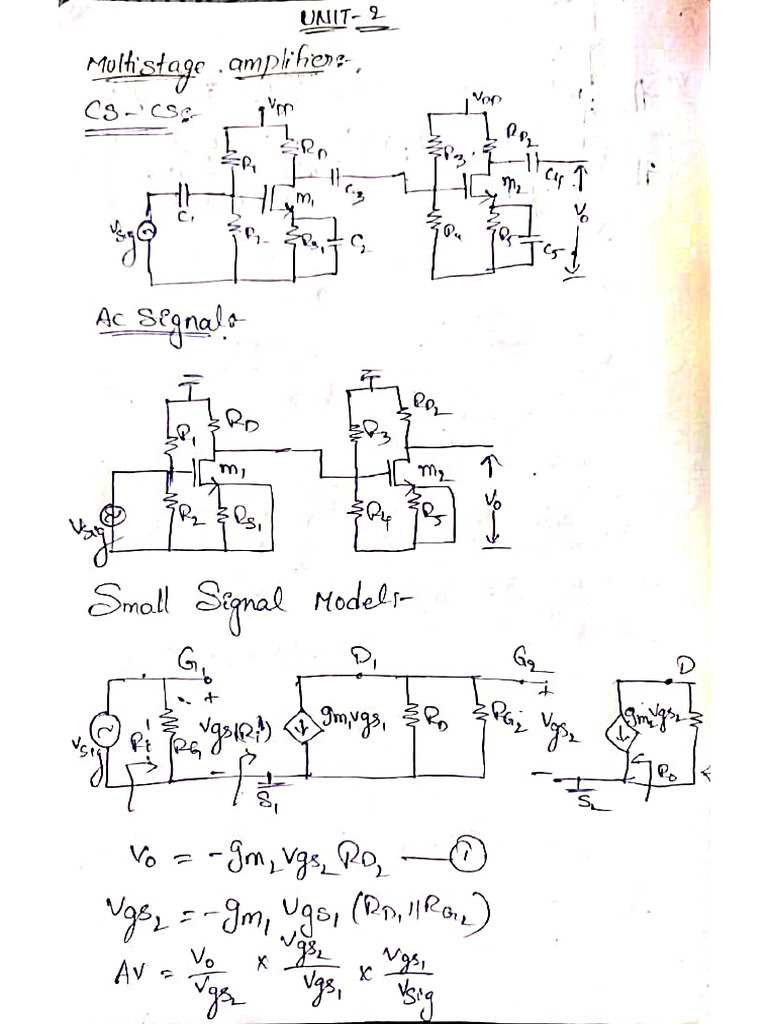 UNIT-2
Multistage amplifier:-
CS-CS:-
VDD
VDD
R1
RD
C3
R3
RD2
C4
C1
m1
m2
Vsig
R2
RS1
C2
R4
R5
C5
Vo
Ac Signal:-
R1
RD
R3
RD2
m1
m2
Vsig
R2
RS1
R4
R5
Vo
Small Signal Model:-
G1
D1
G2
D
+
+
Vsig
Ri'
RG1
Vgs1
gm1vgs1
RD
RG2
Vgs2
gm2vgs2
Ro
-
-
S1
S2
Vo = -gm2Vgs2RD2 — 1
Vgs2 = -gm1Vgs1(RD1||RG2)
AV = Vo/Vgs2 × Vgs2/Vgs1 × Vgs1/Vsig